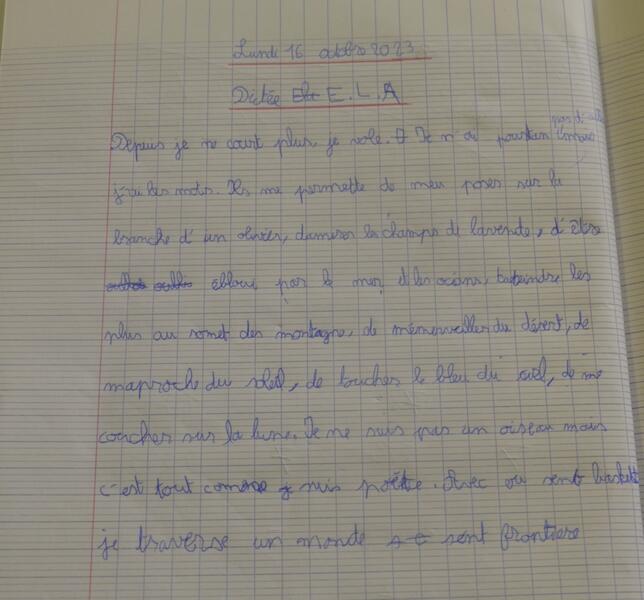 Lundi 16 octobre 2023
Dictée E.L.A
Depuis je ne court plus, je vole. Je n'ai pourtan pas d'aile
j'ai les mots. Ils me permette de meu poser sur la
branche d'un olivier, damirer les champs de lavende, d'être
ebloui par le mer et les océans, les
plus au somet des montagne, de mémerveiller du désert, de
maproche du soleil, de toucher le bleu du ciel, de me
coucher sur la lune. Je ne suis pas un oiseau mais
c'est tout comme je suis poète. Avec ou sent baskets
je traverse un monde sent frontiere